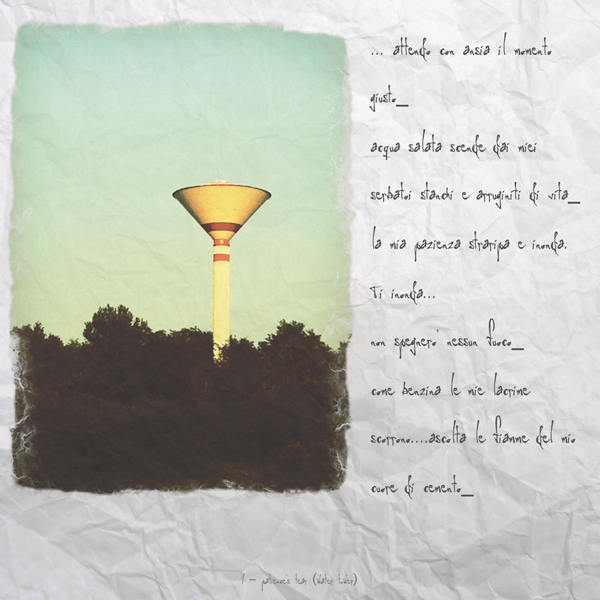 ... attendo con ansia il momento
giusto_
acqua salata scende dai miei
serbatoi stanchi e arruginiti di vita_
la mia pazienza straripa e inonda.
Ti inonda...
non spegnero' nessun fuoco_
come benzina le mie lacrime
scorrono....ascolta le fiamme del mio
cuore di cemento_
1 - patience's tear (Water Tower)